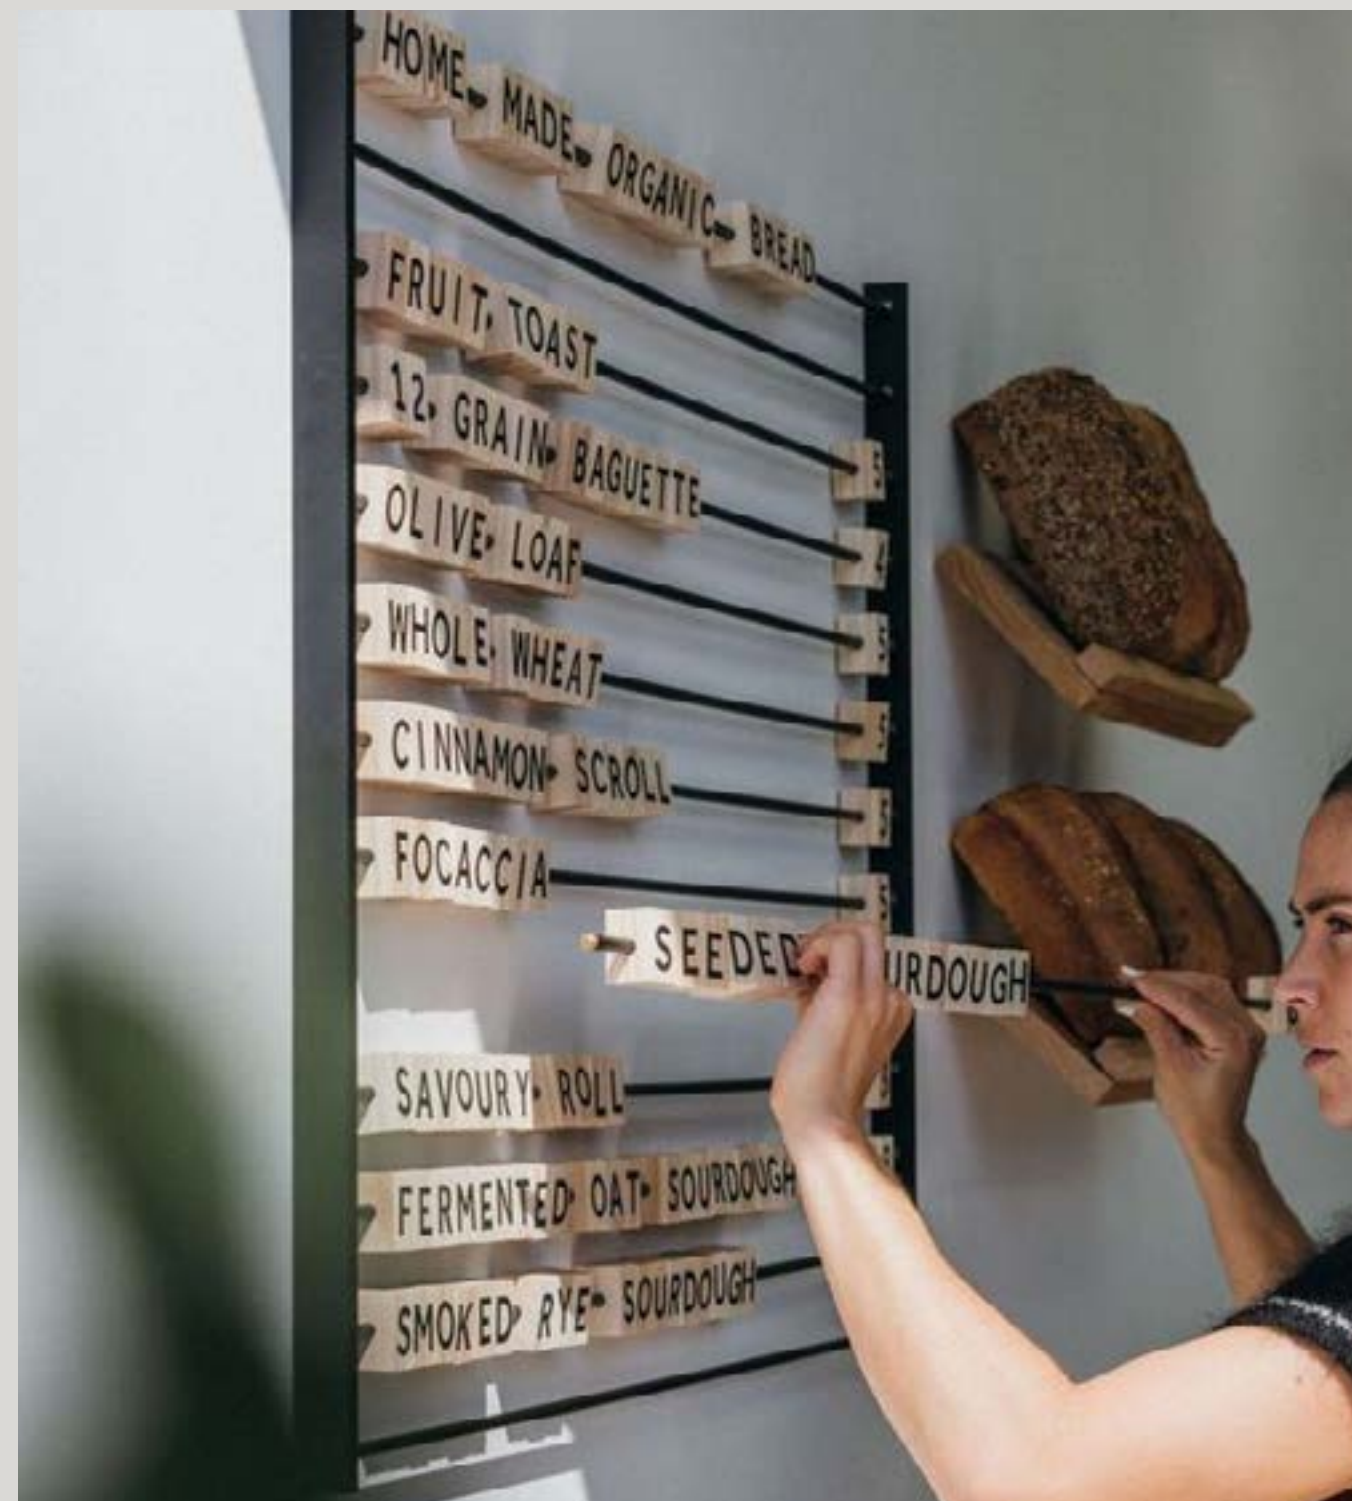 HOME MADE ORGANIC BREAD
FRUIT TOAST 5
12 GRAIN BAGUETTE
OLIVE LOAF 5
WHOLE WHEAT 5
CINNAMON SCROLL
FOCACCIA 5
SEEDED URDOUGH
SAVOURY ROLL
FERMENTED OAT SOURDOUGH
SMOKED RYE SOURDOUGH